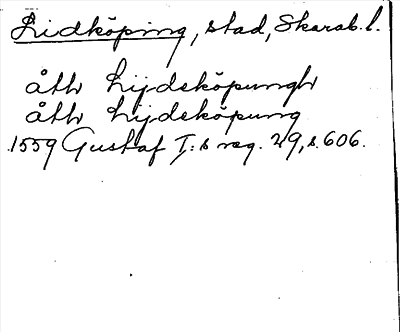 Lidköping, stad, Skarab. l.
åth Lijdsköpungh
åth Lijdsköpung
1559 Gustaf I:s reg. 29, s. 606.